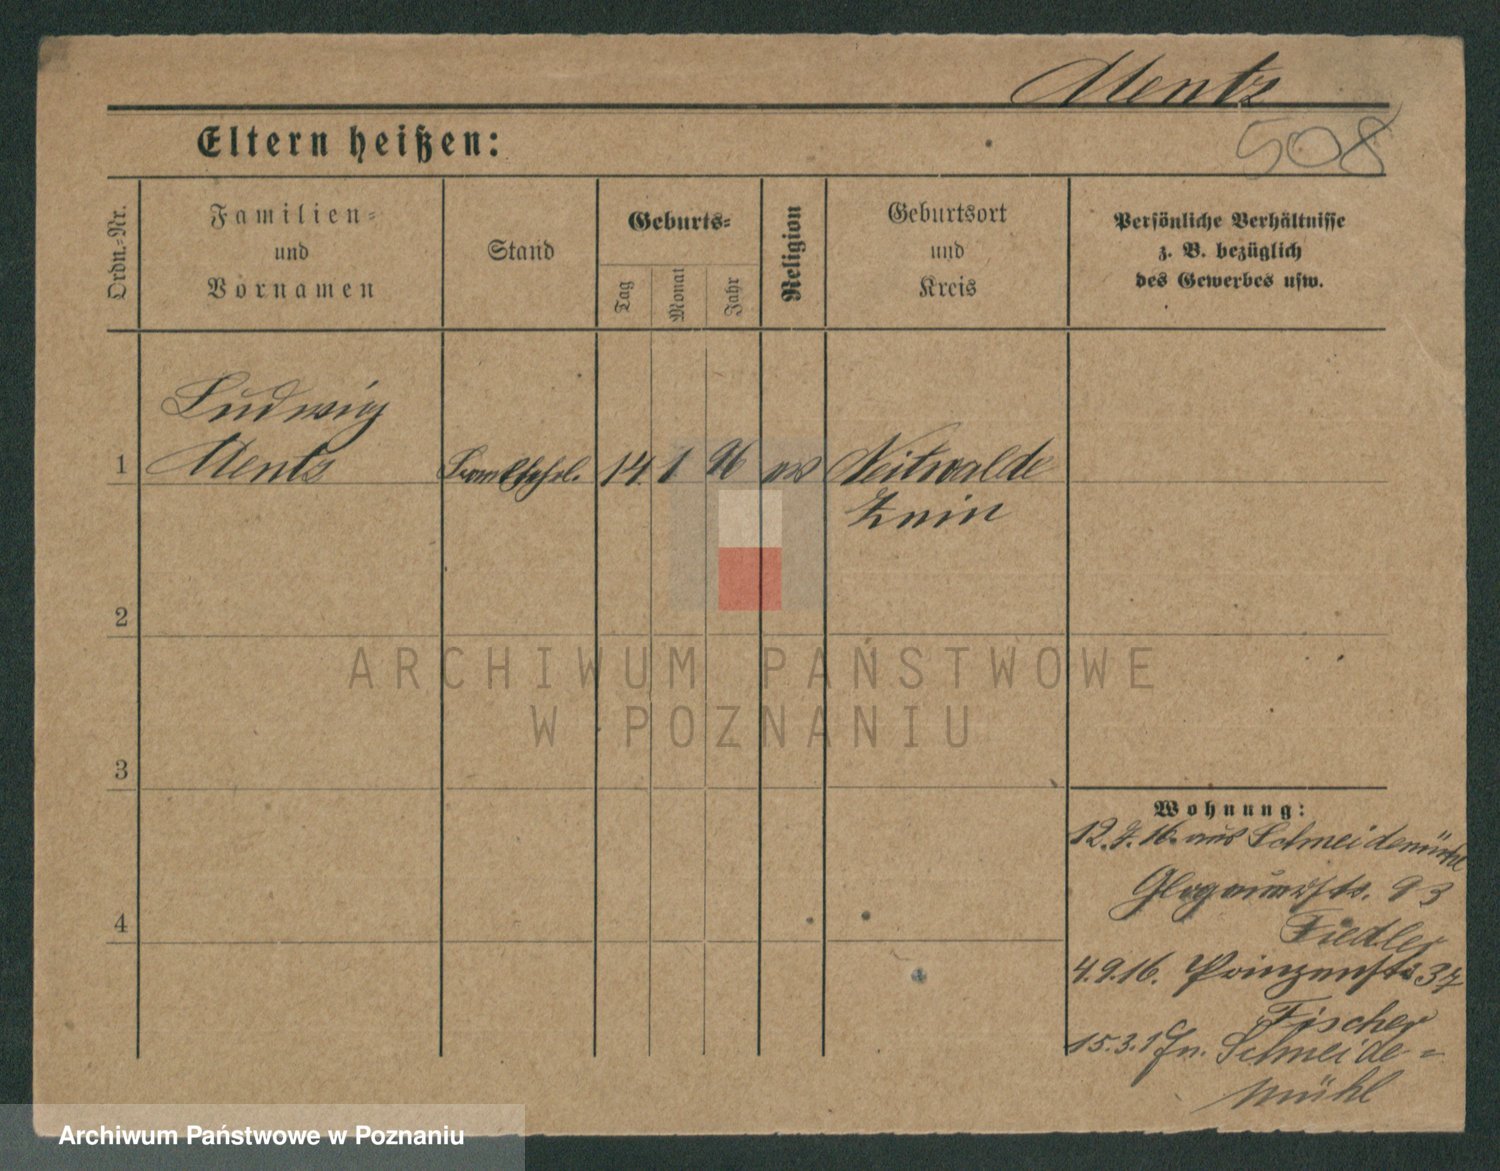 Mentz
508
Eltern heißen:
Ordn.-Nr.
Familien-
und
Vornamen
Stand
Geburts-
Tag
Monat
Jahr
Religion
Geburtsort
und
Kreis
Persönliche Verhältnisse
z. B. bezüglich
des Gewerbes usw.
Ludwig
1 Mentz 14. 1 96 ev Neitwalde
Znin
2
ARCHIWUM PAŃSTWOWE
W POZNANIU
3
Wohnung:
12.7.16. aus Schneidemühl
Glogauerstr. 93
Fiedler
4
4.9.16. Prinzenstr 37
Fischer
15.3.17 n. Schneide-
mühl
Archiwum Państwowe w Poznaniu